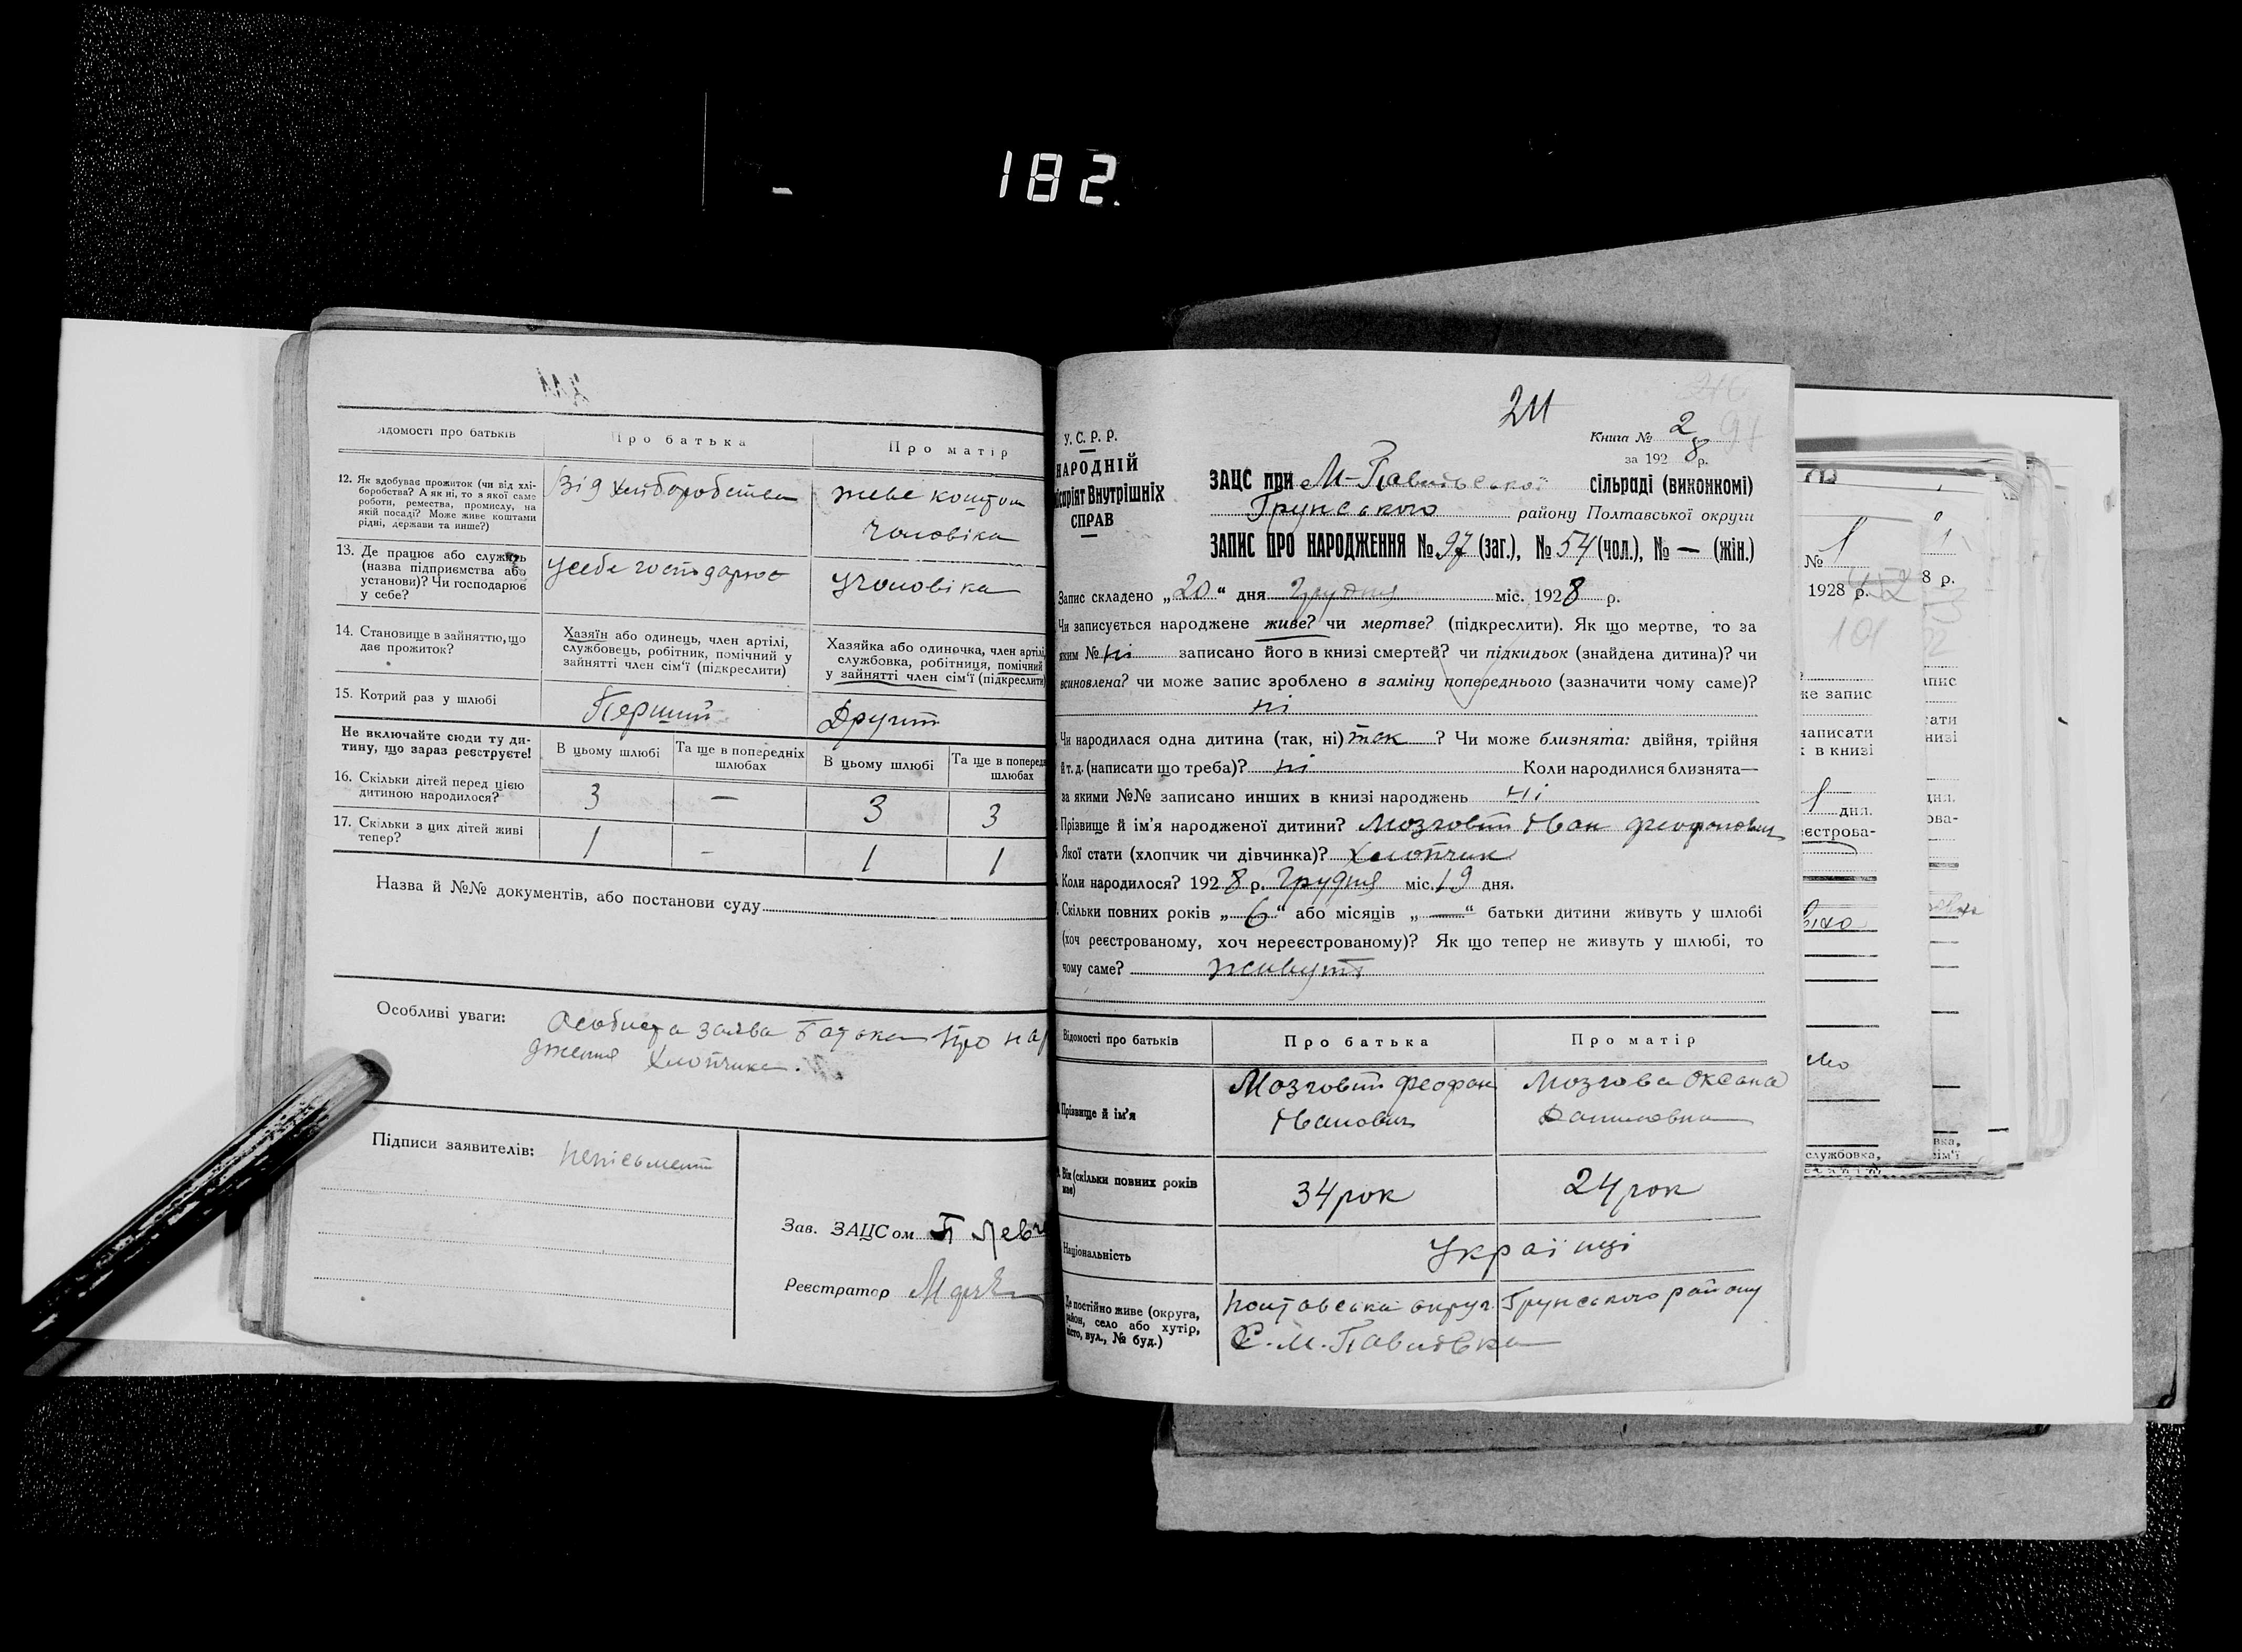 182.
Відомості про батьків
Про батька
Про матір
12. Як здобуває прожиток (чи від хлі-
боробства? А як ні, то з якої саме
роботи, ремества, промислу, на
якій посаді? Може живе коштами
рідні, держави та инше?)
Від хліборобства
живе коштом
чоловіка
13. Де працює або служить
(назва підприємства або
установи)? Чи господарює
у себе?
усебе господарює
учоловіка
14. Становище в зайняттю, що
дає прожиток?
Хазяїн або одинець, член артілі,
службовець, робітник, помічний у
зайнятті член сім'ї (підкреслити)
Хазяйка або одиночка, член артілі,
службовка, робітниця, помічний
у зайнятті член сім'ї (підкреслити)
15. Котрий раз у шлюбі
Перший
Другий
Не включайте сюди ту ди-
тину, що зараз реєструєте!
В цьому шлюбі
Та ще в попередніх
шлюбах
В цьому шлюбі
Та ще в поперед
шлюбах
16. Скільки дітей перед цією
дитиною народилося?
3 — 3 3
17. Скільки з цих дітей живі
тепер?
1 - 1 1
Назва й №№ документів, або постанови суду
Особливі уваги:
Особиста заява Батька про нар
дження хлопчика.
Підписи заявителів: неписьмений
Зав. ЗАЦСом П Левч
Реєстратор
211
У.С.Р.Р.
НАРОДНІЙ
місаріят Внутрішніх
СПРАВ
Книга № 2
за 1928 р.
ЗАЦС при М-Павлівської сільраді (виконкомі)
Грунського району Полтавської округи
ЗАПИС ПРО НАРОДЖЕННЯ № 97 (заг.), № 54 (чол.), № — (жін.)
Запис складено „20“ дня Грудня міс. 1928 р.
Чи записується народжене живе? чи мертве? (підкреслити). Як що мертве, то за
яким № ні записано його в книзі смертей? чи підкидьок (знайдена дитина)? чи
всиновлена? чи може запис зроблено в заміну попереднього (зазначити чому саме)?
ні
Чи народилася одна дитина (так, ні) так ? Чи може близнята: двійня, трійня
й т. д. (написати що треба)? ні Коли народилися близнята—
за якими №№ записано инших в книзі народжень ні
Прізвище й ім'я народженої дитини? Мозговий Іван Феофанович
Якої стати (хлопчик чи дівчинка)? Хлопчик
Коли народилося? 1928 р. Грудня міс. 19 дня.
Скільки повних років „6“ або місяців „—“ батьки дитини живуть у шлюбі
(хоч реєстрованому, хоч нереєстрованому)? Як що тепер не живуть у шлюбі, то
чому саме? живуть
Відомості про батьків
Про батька
Про матір
Прізвище й ім'я
Мозговий Феофан
Іванович
Мозгова Оксана
Даниловна
Вік (скільки повних років
має)
34 рок
24 рок
Національність
Українці
Де постійно живе (округа,
район, село або хутір,
місто, вул., № буд.)
Полтавська округ. Грунського району
С. М. Павлівка
№ 1
1928 р.
101
8 р.
же запис
написати
к в книзі
1 дня.
еєстрова-
службовка,